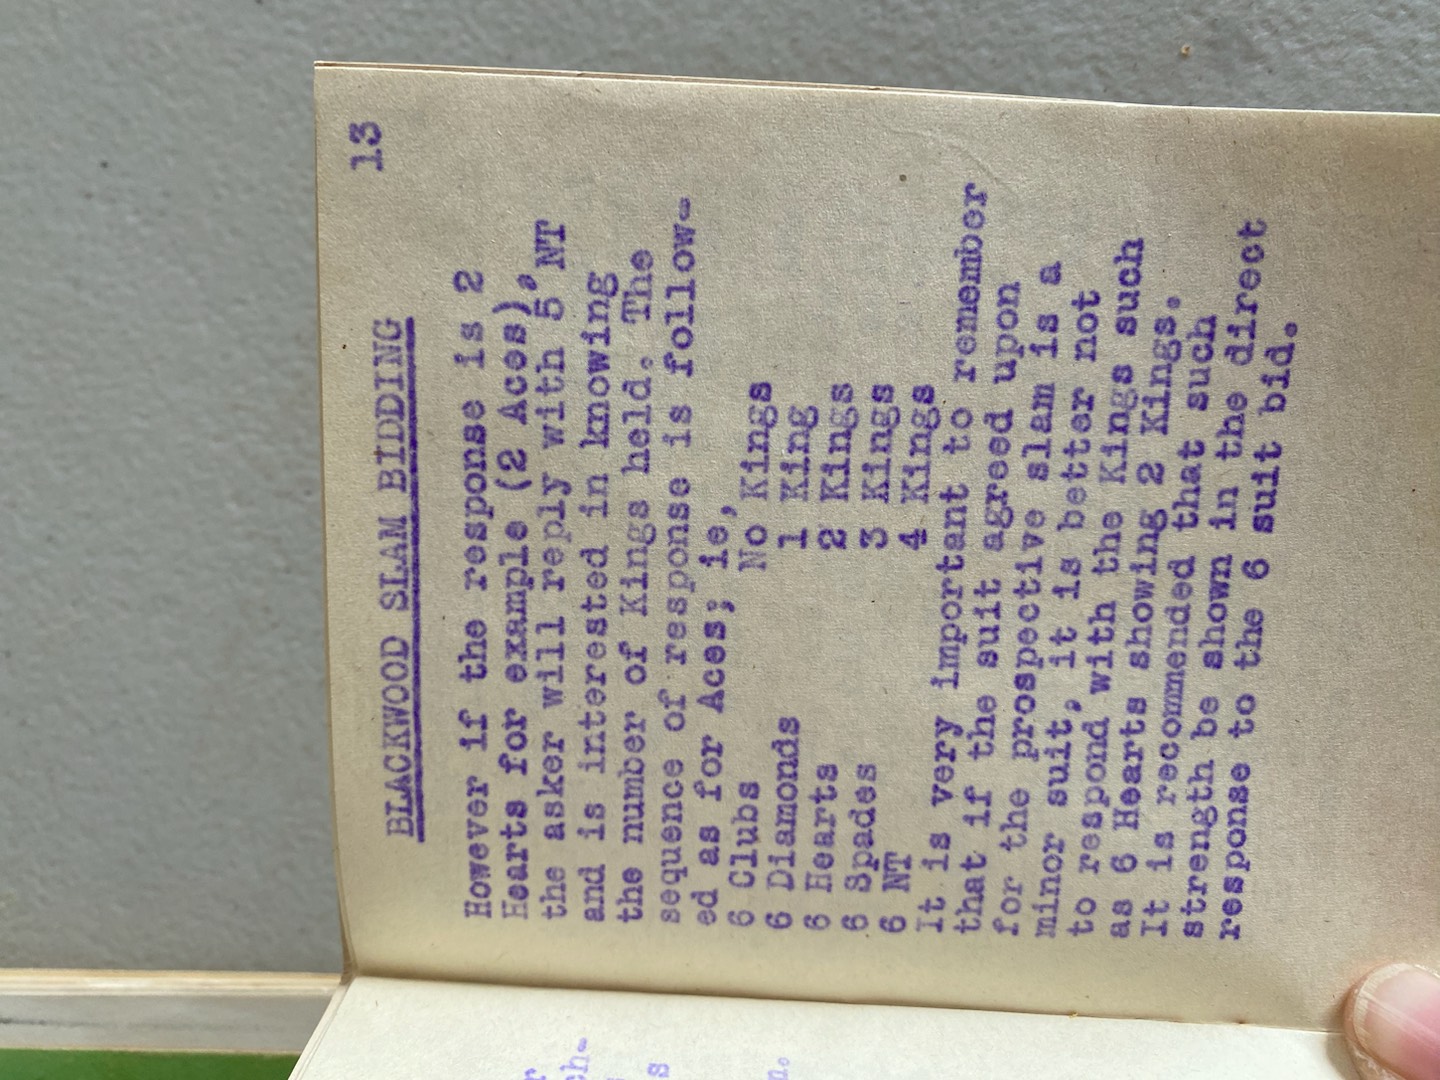 13
BLACKWOOD SLAM BIDDING
However if the response is 2
Hearts for example (2 Aces),
the asker will reply with 5 NT
and is interested in knowing
the number of Kings held. The
sequence of response is follow-
ed as for Aces; ie,
6 Clubs No Kings
6 Diamonds 1 King
6 Hearts 2 Kings
6 Spades 3 Kings
6 NT 4 Kings
It is very important to remember
that if the suit agreed upon
for the prospective slam is a
minor suit, it is better not
to respond with the Kings such
as 6 Hearts showing 2 Kings.
It is recommended that such
strength be shown in the direct
response to the 6 suit bid.